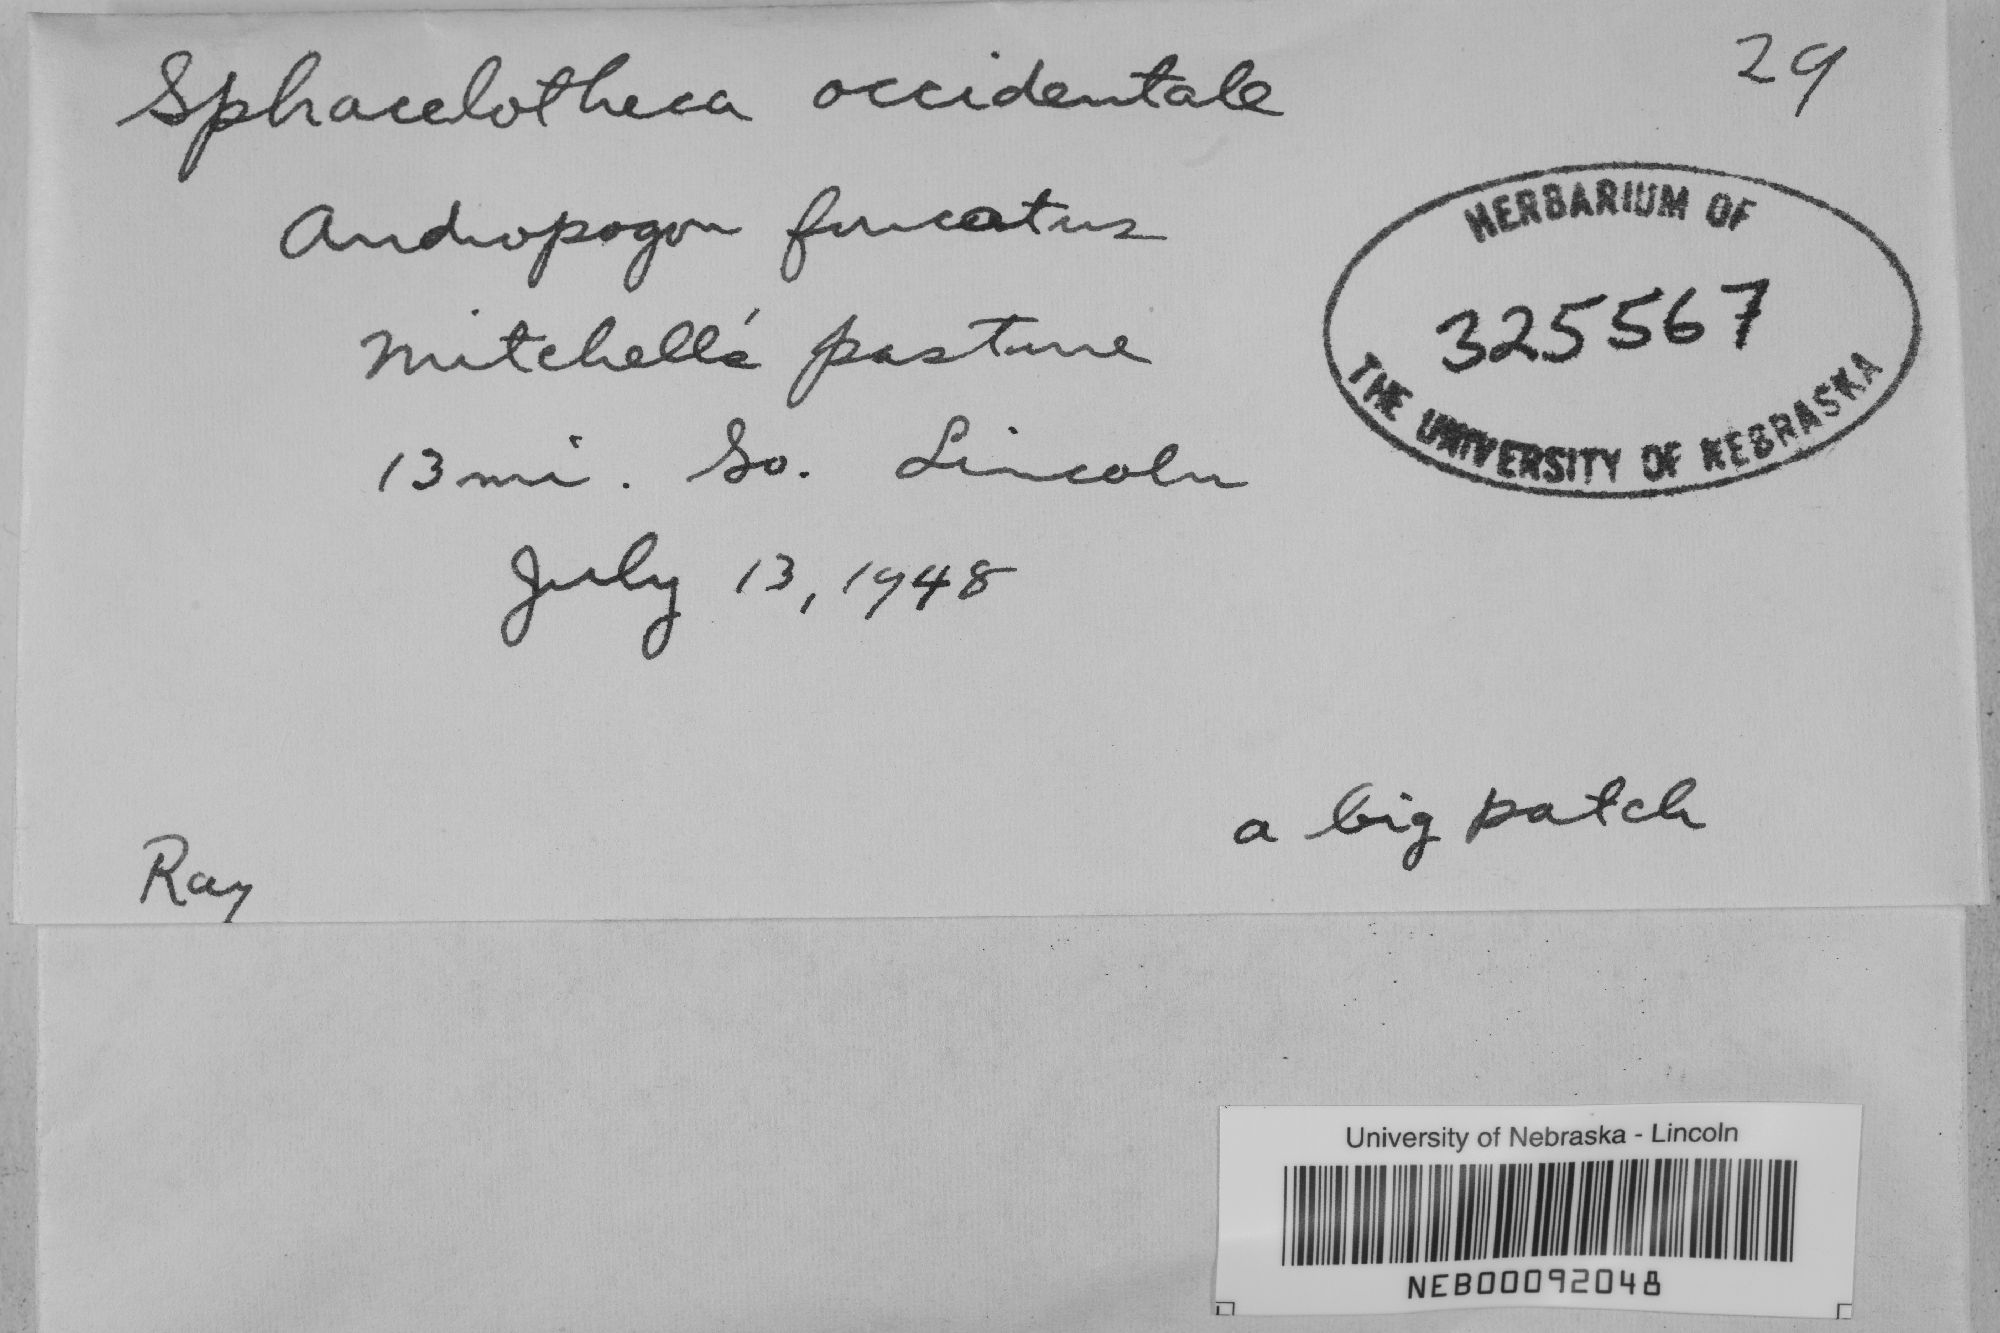 29
Sphacelotheca occidentale
Andropogon furcatus
Mitchell's pasture
13 mi. So. Lincoln
July 13, 1948
HERBARIUM OF
325567
THE UNIVERSITY OF NEBRASKA
a big patch
Ray
University of Nebraska - Lincoln
NEB00092048